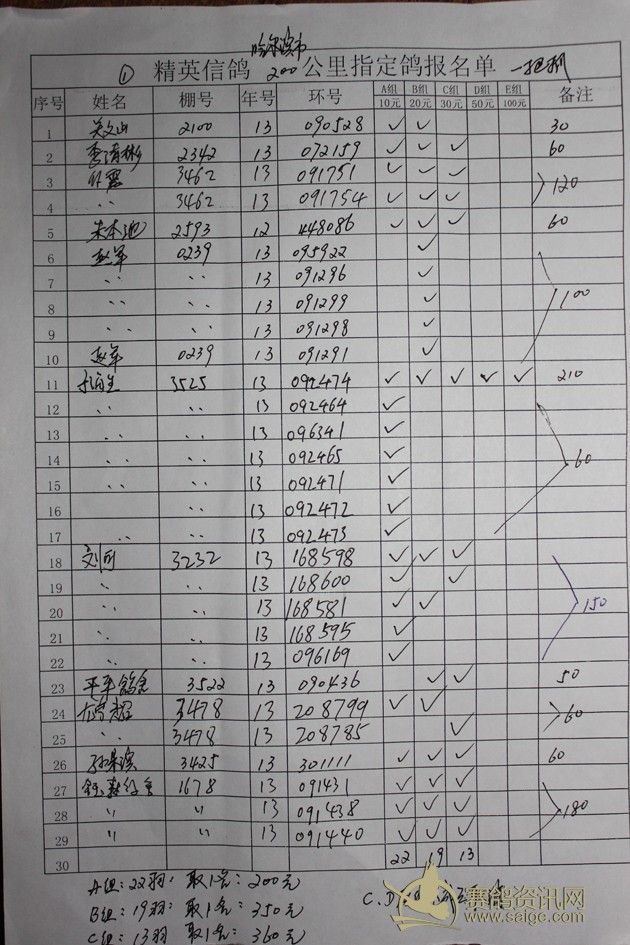 哈尔滨市
① 精英信鸽 200 公里指定鸽报名单
序号 姓名 棚号 年号 环号 A组 10元 B组 20元 C组 30元 D组 50元 E组 100元 备注
1 2100 13 090528 ✓ ✓ 30
2 李清彬 2342 13 072159 ✓ ✓ ✓ 60
3 3462 13 091751 ✓ ✓ ✓ 120
4 〃 3462 13 091754 ✓ ✓ ✓
5 朱本地 2593 12 448086 ✓ ✓ ✓ 60
6 赵军 0239 13 095922 ✓
7 〃 〃 13 091296 ✓
8 〃 〃 13 091299 ✓ 100
9 〃 〃 13 091298 ✓
10 赵军 0239 13 091291 ✓
11 3525 13 092474 ✓ ✓ ✓ ✓ ✓ 210
12 〃 〃 13 092464 ✓
13 〃 〃 13 096341 ✓
14 〃 〃 13 092465 ✓ 60
15 〃 〃 13 092471 ✓
16 13 092472 ✓
17 〃 〃 13 092473 ✓
18 刘 3232 13 168598 ✓ ✓ ✓
19 〃 〃 13 168600 ✓ ✓
20 〃 〃 13 168581 ✓ ✓ 150
21 〃 〃 13 168595 ✓
22 〃 〃 13 096169 ✓
23 平平鸽舍 3522 13 090436 ✓ ✓ 50
24 3478 13 208799 ✓ ✓ 60
25 〃 3478 13 208785 ✓
26 孙 3425 13 301111 ✓ ✓ ✓ 60
27 1678 13 091431 ✓ ✓ ✓
28 〃 〃 13 091438 ✓ ✓ ✓ 180
29 〃 〃 13 091440 ✓ ✓ ✓
30 22 19 13
A组：22羽：取1名：200元
B组：19羽：取1名：350元
C组：13羽 取1名：360元
C.D
赛鸽资讯网
www.saige.com